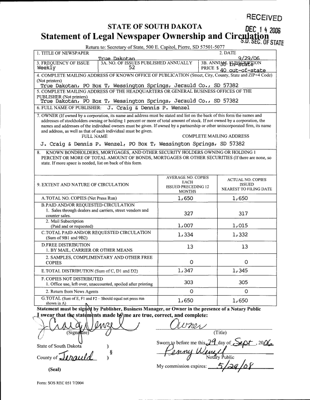 RECEIVED
DEC 14 2006
S.D. SEC. OF STATE
STATE OF SOUTH DAKOTA
Statement of Legal Newspaper Ownership and Circulation
Return to: Secretary of State, 500 E. Capitol, Pierre, SD 57501-5077
1. TITLE OF NEWSPAPER
True Dakotan
2. DATE
9/29/06
3. FREQUENCY OF ISSUE
Weekly
3A. NO. OF ISSUES PUBLISHED ANNUALLY
52
3B. ANNUAL SUBSCRIPTION
PRICE $
40 out-of-state
4. COMPLETE MAILING ADDRESS OF KNOWN OFFICE OF PUBLICATION (Street, City, County, State and ZIP+4 Code)
(Not printers)
True Dakotan, PO Box T, Wessington Springs, Jerauld Co., SD 57382
5. COMPLETE MAILING ADDRESS OF THE HEADQUARTERS OR GENERAL BUSINESS OFFICES OF THE
PUBLISHER (Not printers)
True Dakotan, PO Box T, Wessington Springs, Jerauld Co., SD 57382
6. FULL NAME OF PUBLISHER: J. Craig & Dennis P. Wenzel
7. OWNER (If owned by a corporation, its name and address must be stated and list on the back of this form the names and
addresses of stockholders owning or holding 1 percent or more of total amount of stock. If not owned by a corporation, the
names and addresses of the individual owners must be given. If owned by a partnership or other unincorporated firm, its name
and address, as well as that of each individual must be given.
FULL NAME COMPLETE MAILING ADDRESS
J. Craig & Dennis P. Wenzel, PO Box T, Wessington Springs, SD 57382
8. KNOWN BONDHOLDERS, MORTGAGES, AND OTHER SECURITY HOLDERS OWNING OR HOLDING 1
PERCENT OR MORE OF TOTAL AMOUNT OF BONDS, MORTGAGES OR OTHER SECURITIES (If there are none, so
state. If more space is needed, list on back of this form.
9. EXTENT AND NATURE OF CIRCULATION
AVERAGE NO. COPIES
EACH
ISSUED PRECEDING 12
MONTHS
ACTUAL NO. COPIES
ISSUED
NEAREST TO FILING DATE
A. TOTAL NO. COPIES (Net Press Run) 1,650 1,650
B. PAID AND/OR REQUESTED CIRCULATION
1. Sales through dealers and carriers, street vendors and
counter sales. 327 317
2. Mail Subscription
(Paid and or requested) 1,007 1,015
C. TOTAL PAID AND/OR REQUESTED CIRCULATION
(Sum of 9B1 and 9B2) 1,334 1,332
D. FREE DISTRIBUTION
1. BY MAIL, CARRIER OR OTHER MEANS 13 13
2. SAMPLES, COMPLIMENTARY AND OTHER FREE
COPIES 0 0
E. TOTAL DISTRIBUTION (Sum of C, D1 and D2) 1,347 1,345
F. COPIES NOT DISTRIBUTED
1. Office use, left over, unaccounted, spoiled after printing 303 305
2. Return from News Agents 0 0
G. TOTAL (Sum of E, F1 and F2 - Should equal net press run
shown in A) 1,650 1,650
Statement must be signed by Publisher, Business Manager, or Owner in the presence of a Notary Public
I swear that the statements made by me are true, correct, and complete:
J Craig Wenzel Owner
(Signature) (Title)
State of South Dakota )
County of Jerauld ) §
Sworn to before me this 29 day of Sept, 2006
Penny Wenzel
Notary Public
(Seal)
My commission expires: 5/28/08
Form: SOS REC 051 7/2004